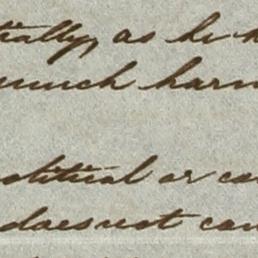 tially, as he h
much harm
olitical or co
does not can